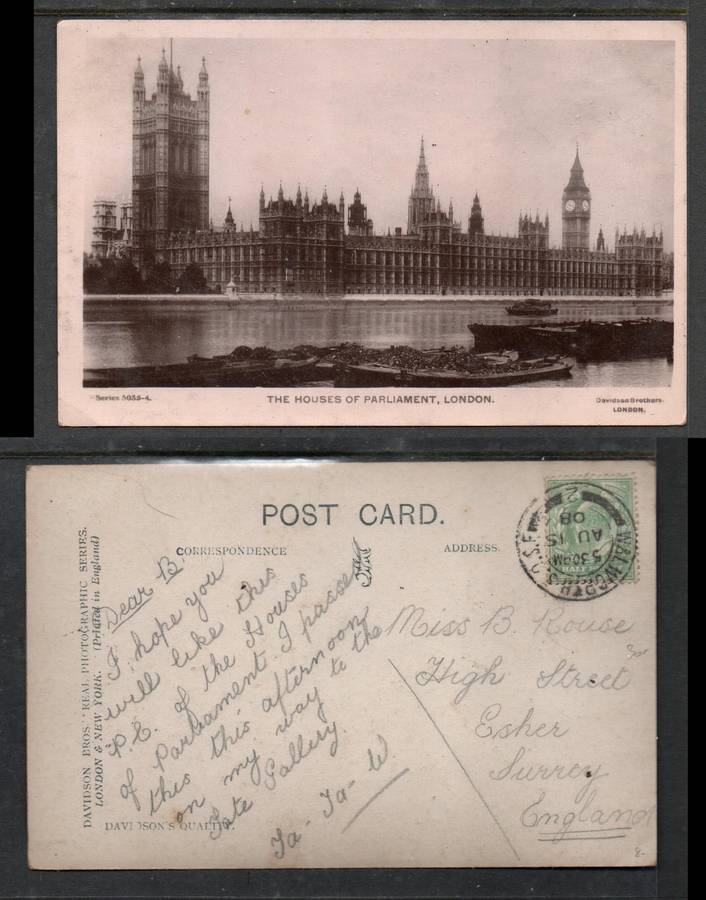 Series 5055-4.
THE HOUSES OF PARLIAMENT, LONDON.
Davidson Brothers.
LONDON.
POST CARD.
CORRESPONDENCE
ADDRESS.
DAVIDSON BROS.' REAL PHOTOGRAPHIC SERIES.
LONDON & NEW YORK. (Printed in England)
DAVIDSON'S QUALITY.
Dear B
I hope you
will like this
P.C. of the Houses
of Parliament. I passed
this this afternoon
on my way to the
Tate Gallery.
Ta-Ta-W
Miss B. Rouse
High Street
Esher
Surrey
England
WALWORTH S.O. S.E.
5.30 PM
AU 15
08
2
HALF
8-